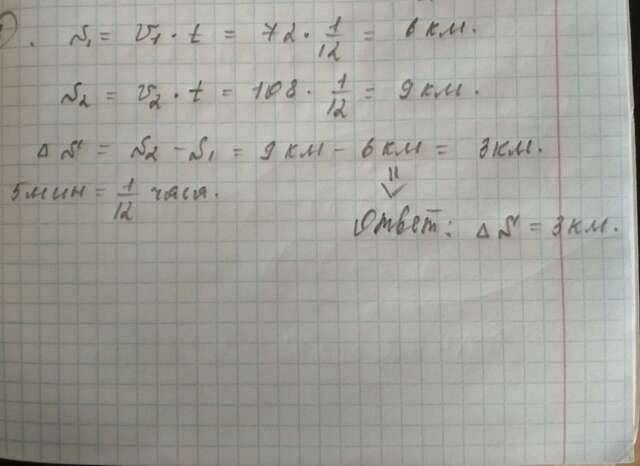 . S₁ = V₁ · t = 72 · 1/12 = 6 км.
S₂ = V₂ · t = 108 · 1/12 = 9 км.
Δ S = S₂ - S₁ = 9 км - 6 км = 3 км.
5 мин = 1/12 часа.
Ответ: Δ S = 3 км.